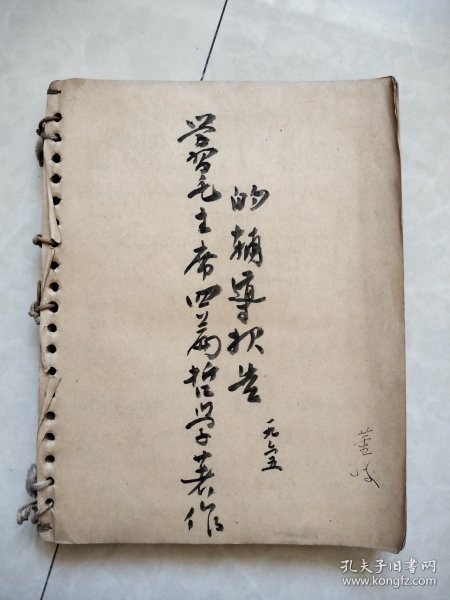 学习毛主席四篇哲学著作
的辅导报告
一九六五
董
孔夫子旧书网
www.kongfz.com